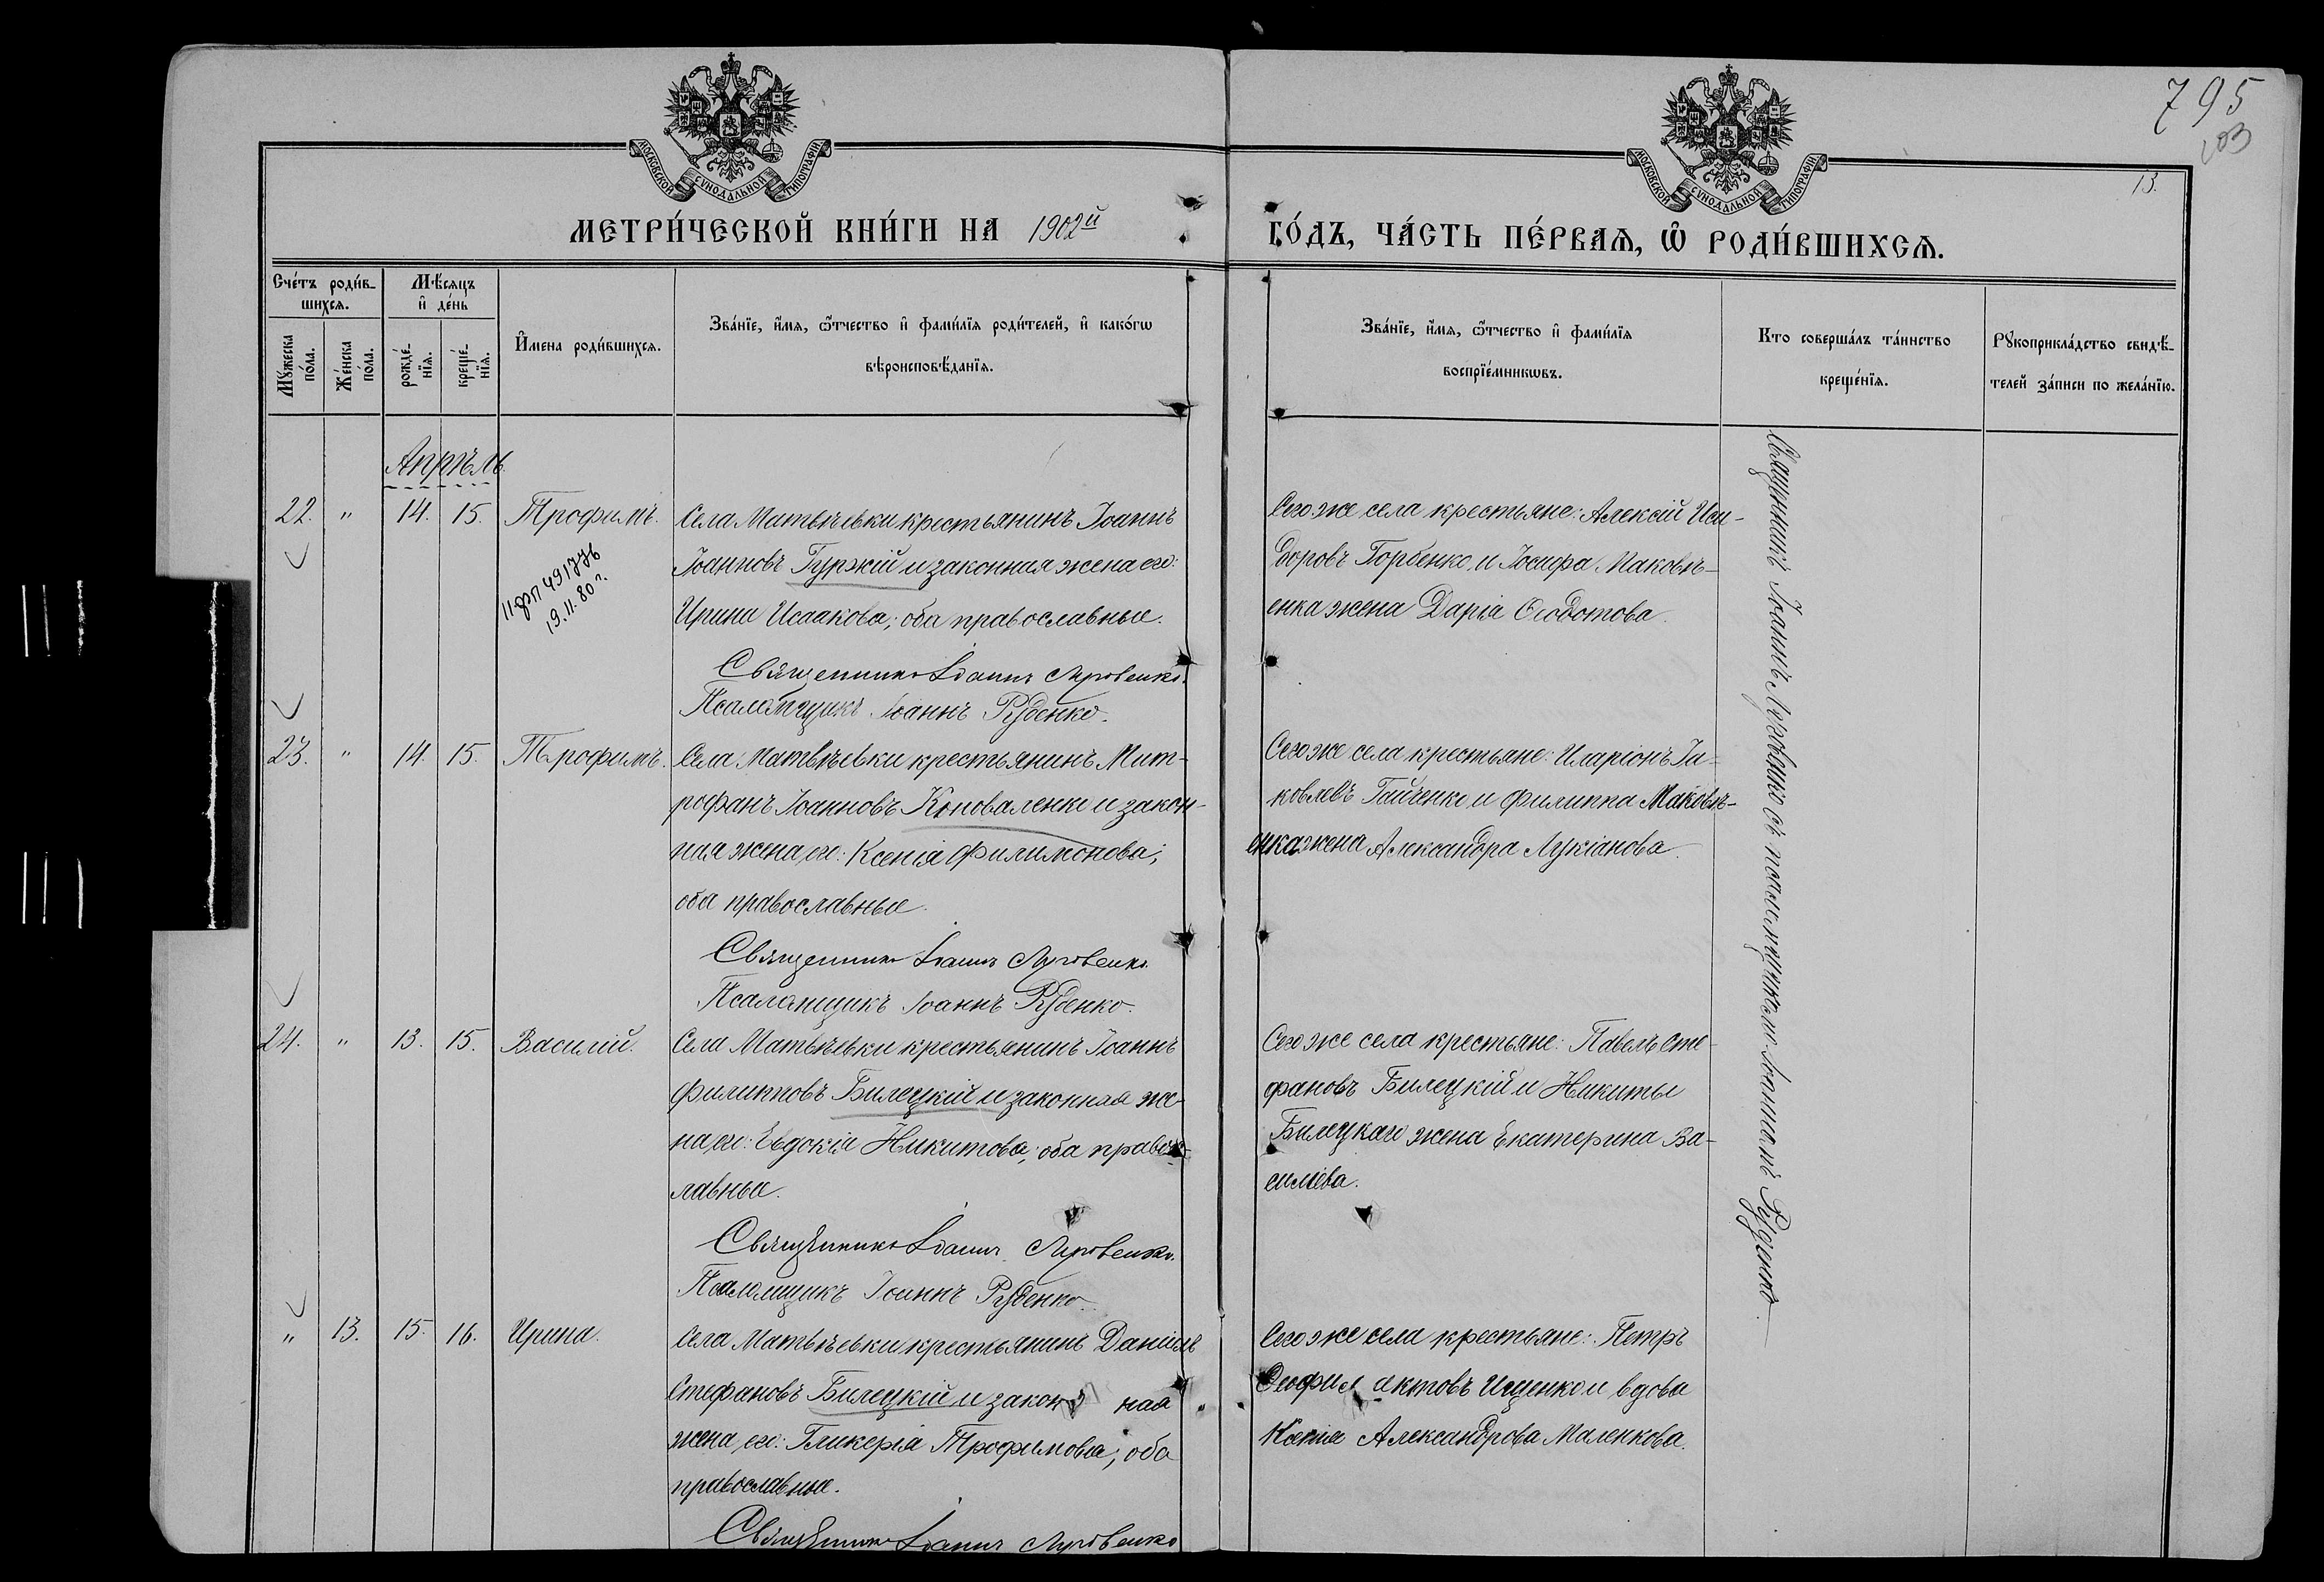 795
103
13.
МОСКОВСКОЙ СѴНОДАЛЬНОЙ ТИПОГРАФІИ
МОСКОВСКОЙ СѴНОДАЛЬНОЙ ТИПОГРАФІИ
МЕТРИ́ЧЕСКОЙ КНИ́ГИ НА 1902й
ГО́ДЪ, ЧА́СТЬ ПЕ́РВАѦ, Ѡ҆ РОДИ́ВШИХСѦ.
Сче́тъ роди́в-
шихсѧ.
Мѣ́сѧцъ
и҆ де́нь
Мꙋжеска
по́ла.
Же́нска
по́ла.
рожде́-
нїѧ.
креще́-
нїѧ.
И҆́мена роди́вшихсѧ.
Зва́нїе, и҆́мѧ, ѻ҆́тчество и҆ фами́лїѧ роди́телей, и҆ како́гѡ
вѣроисповѣ́данїѧ.
Зва́нїе, и҆́мѧ, ѻ҆́тчество и҆ фами́лїѧ
воспрїе́мникѡвъ.
Кто соверша́лъ та́инство
креще́нїѧ.
Рꙋкоприкла́дство свидѣ́-
телей за́писи по жела́нїю.
Апрѣль.
22. " 14. 15. Трофимъ.
II-ФП 491776
19.11.80г.
Села Матвѣевки крестьянинъ Іоаннъ
Іоанновъ Гуржій и законная жена его:
Ирина Исаакова; оба православные.
Священникъ Іоаннъ Луговенко.
Псаломщикъ Іоаннъ Руденко.
Сего же села крестьяне: Алексій Иси-
доровъ Горбенко и Іосифа Маковѣ-
енка жена Дарія Ѳеодотова.
23. " 14. 15. Трофимъ.
Села Матвѣевки крестьянинъ Мит-
рофанъ Іоанновъ Коноваленко и закон-
ная жена его: Ксенія Филимонова;
оба православные.
Священникъ Іоаннъ Луговенко.
Псаломщикъ Іоаннъ Руденко.
Сего же села крестьяне: Иларіонъ Іа-
ковлевъ Гайченко и Филиппа Маковѣ-
енка жена Александра Лукіанова.
24. " 13. 15. Василій.
Села Матвѣевки крестьянинъ Іоаннъ
Филипповъ Билецкій и законная же-
на его: Евдокія Никитова; оба правос-
лавные.
Священникъ Іоаннъ Луговенко.
Псаломщикъ Іоаннъ Руденко.
Сего же села крестьяне: Павелъ Сте-
фановъ Билецкій и Никиты
Билецкаго жена Екатерина Ва-
силіева.
" 13. 15. 16. Ирина.
Села Матвѣевки крестьянинъ Даніилъ
Стефановъ Билецкій и закон ная
жена его: Гликерія Трофимовна; оба
православные.
Священникъ Іоаннъ Луговенко
Сего же села крестьяне: Петръ
Ѳеофилактовъ Ищенко и вдова
Ксенія Александрова Маленкова.
Священникъ Іоаннъ Луговенко съ псаломщикомъ Іоанномъ Руденко.